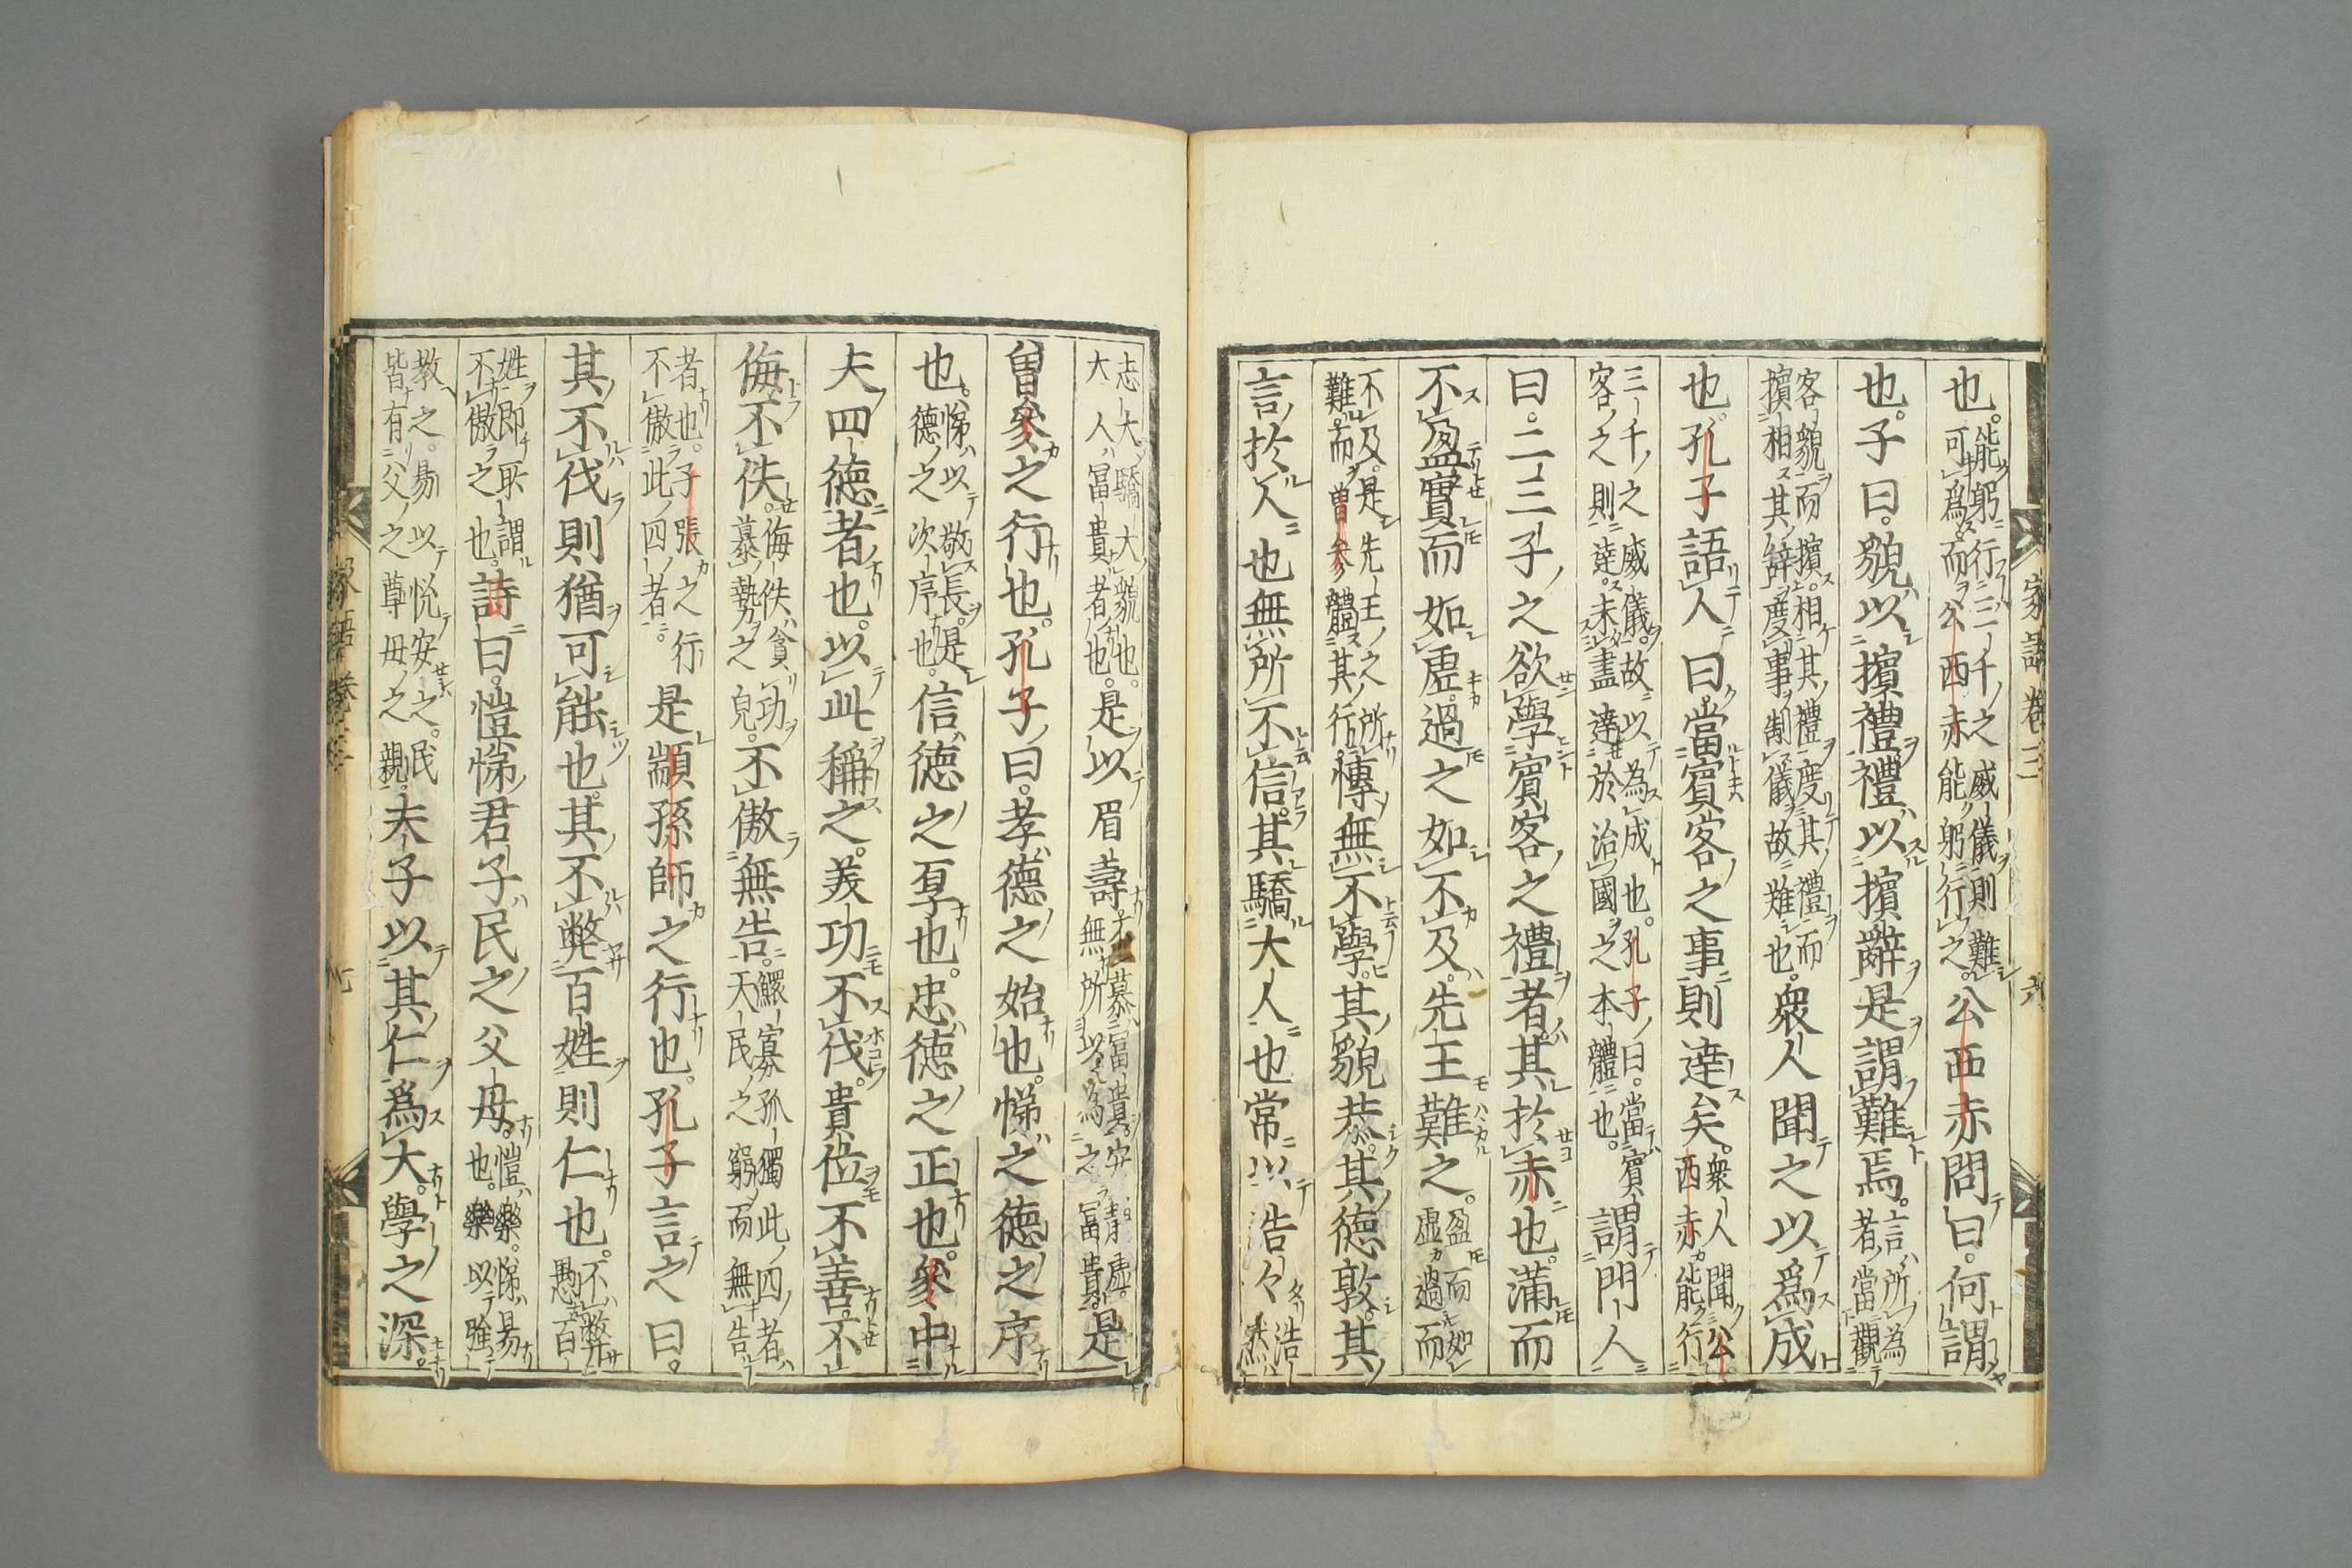 家語卷三 六
也。能躬行三千之威儀則難可爲而公西赤能躬行之。公西赤問曰。何謂
也。子曰。貌以擯禮禮以擯辭是謂難焉。言所為者當觀
客貌而擯。相其禮度其禮而擯相其辭度事制儀故難也。衆人聞之以爲成
也。孔子語人曰。當賓客之事則達矣。衆人聞公西赤能行
三千之威儀。故以為成也。孔子曰。當賓客之則達。未盡達於治國之本體也。謂門人
曰。二三子之欲學賓客之禮者其於赤也。滿而
不盈實而如虛過之如不及。先王難之。盈而如虛過而
不及。是先王之所難。而曽參體其行。慱無不學。其貌恭。其德敦。其
言於人也無所不信其驕大人也常以浩々浩然
志大驕大貌也。大人冨貴者也。是以眉壽不慕冨貴。安靜虛。無所以為之冨貴。是
曽參之行也。孔子曰。孝德之始也。悌之德之序
也。悌以敬長。是德之次序也。信德之厚也。忠德之正也。參中
夫四德者也。以此稱之。美功不伐。貴位不善。不
侮不佚。侮佚貪功慕勢之皃。不傲無告。鰥寡孤獨此四者天民之窮而無告
者也。子張之行不傲此四者。是顓孫師之行也。孔子言之曰。
其不伐則猶可能也。其不弊百姓則仁也。不弊愚百
姓即所謂不傲之也。詩曰。愷悌君子民之父母。愷樂。悌易也。樂以强
教之。易以悦安之。民皆有父之尊母之親。夫子以其仁爲大。學之深。